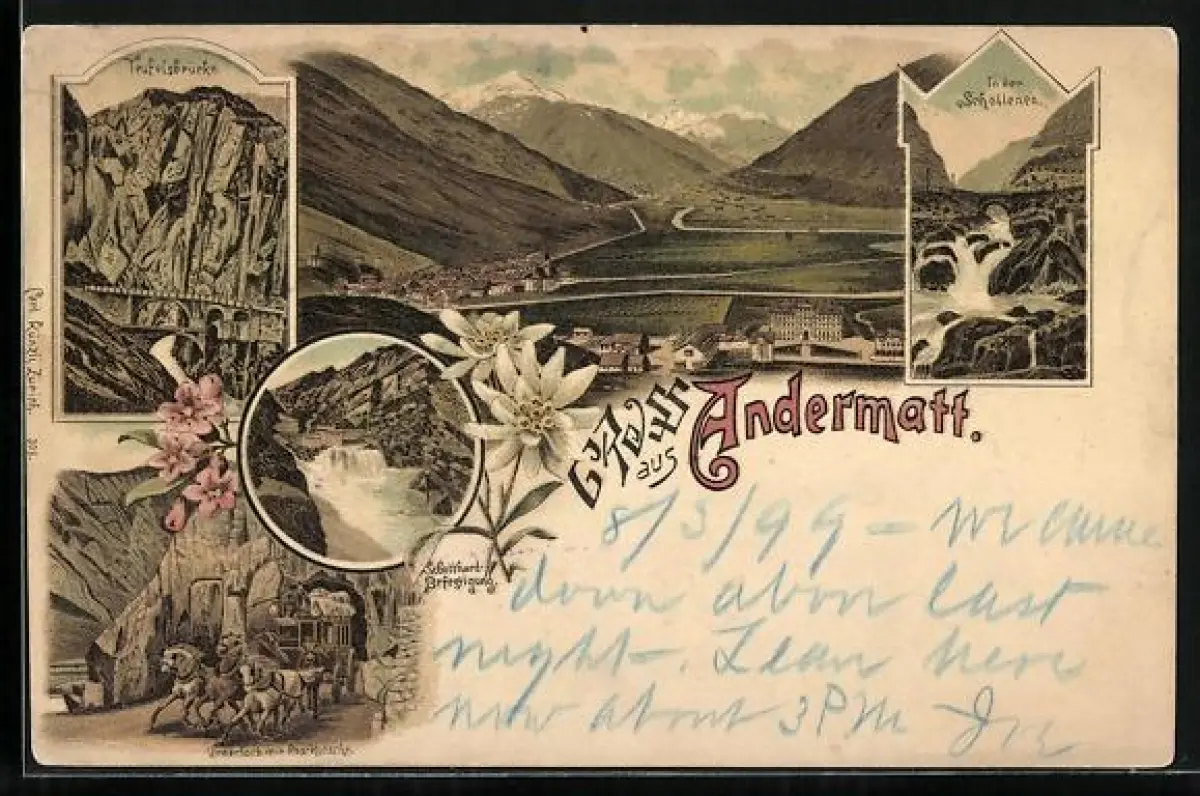 Teufelsbrücke
In der
Schöllenen.
Carl Künzli, Zürich.
Gruss
aus
Andermatt.
Gotthard-
Befestigung.
Urnerloch mit Postkutsche.
8/3/99 - We came
down above last
night -. Leave here
now about 3 PM